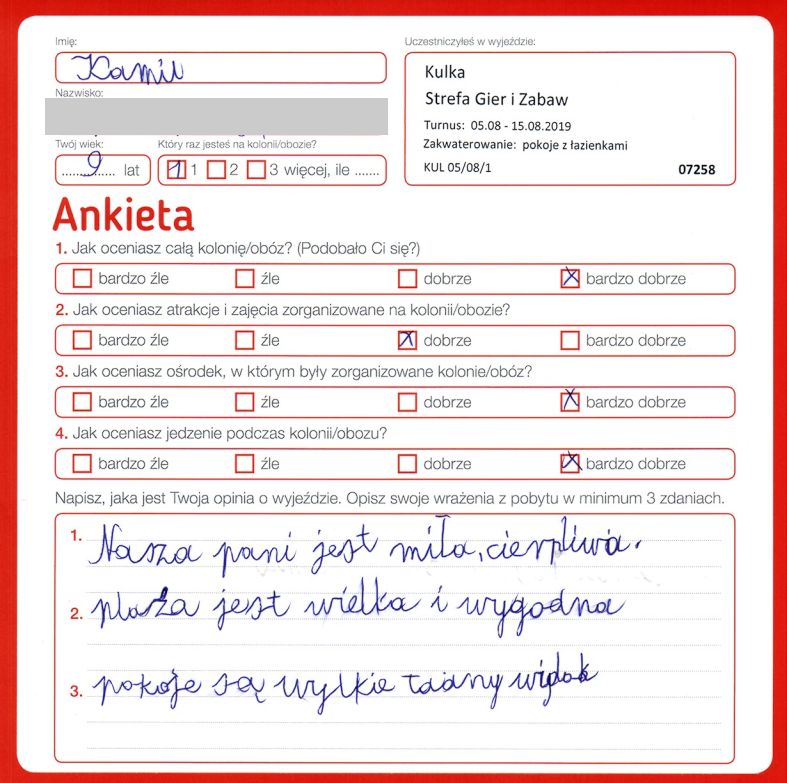 Imię:
Kamil
Uczestniczyłeś w wyjeździe:
Kulka
Strefa Gier i Zabaw
Turnus: 05.08 - 15.08.2019
Zakwaterowanie: pokoje z łazienkami
KUL 05/08/1 07258
Nazwisko:
Twój wiek:
9 lat
Który raz jesteś na kolonii/obozie?
1 1 2 3 więcej, ile .......
Ankieta
1. Jak oceniasz całą kolonię/obóz? (Podobało Ci się?)
bardzo źle źle dobrze X bardzo dobrze
2. Jak oceniasz atrakcje i zajęcia zorganizowane na kolonii/obozie?
bardzo źle źle X dobrze bardzo dobrze
3. Jak oceniasz ośrodek, w którym były zorganizowane kolonie/obóz?
bardzo źle źle dobrze X bardzo dobrze
4. Jak oceniasz jedzenie podczas kolonii/obozu?
bardzo źle źle dobrze X bardzo dobrze
Napisz, jaka jest Twoja opinia o wyjeździe. Opisz swoje wrażenia z pobytu w minimum 3 zdaniach.
1. Nasza pani jest miła, cierpliwa.
2. plaża jest wielka i wygodna
3. pokoje są wylkie widok